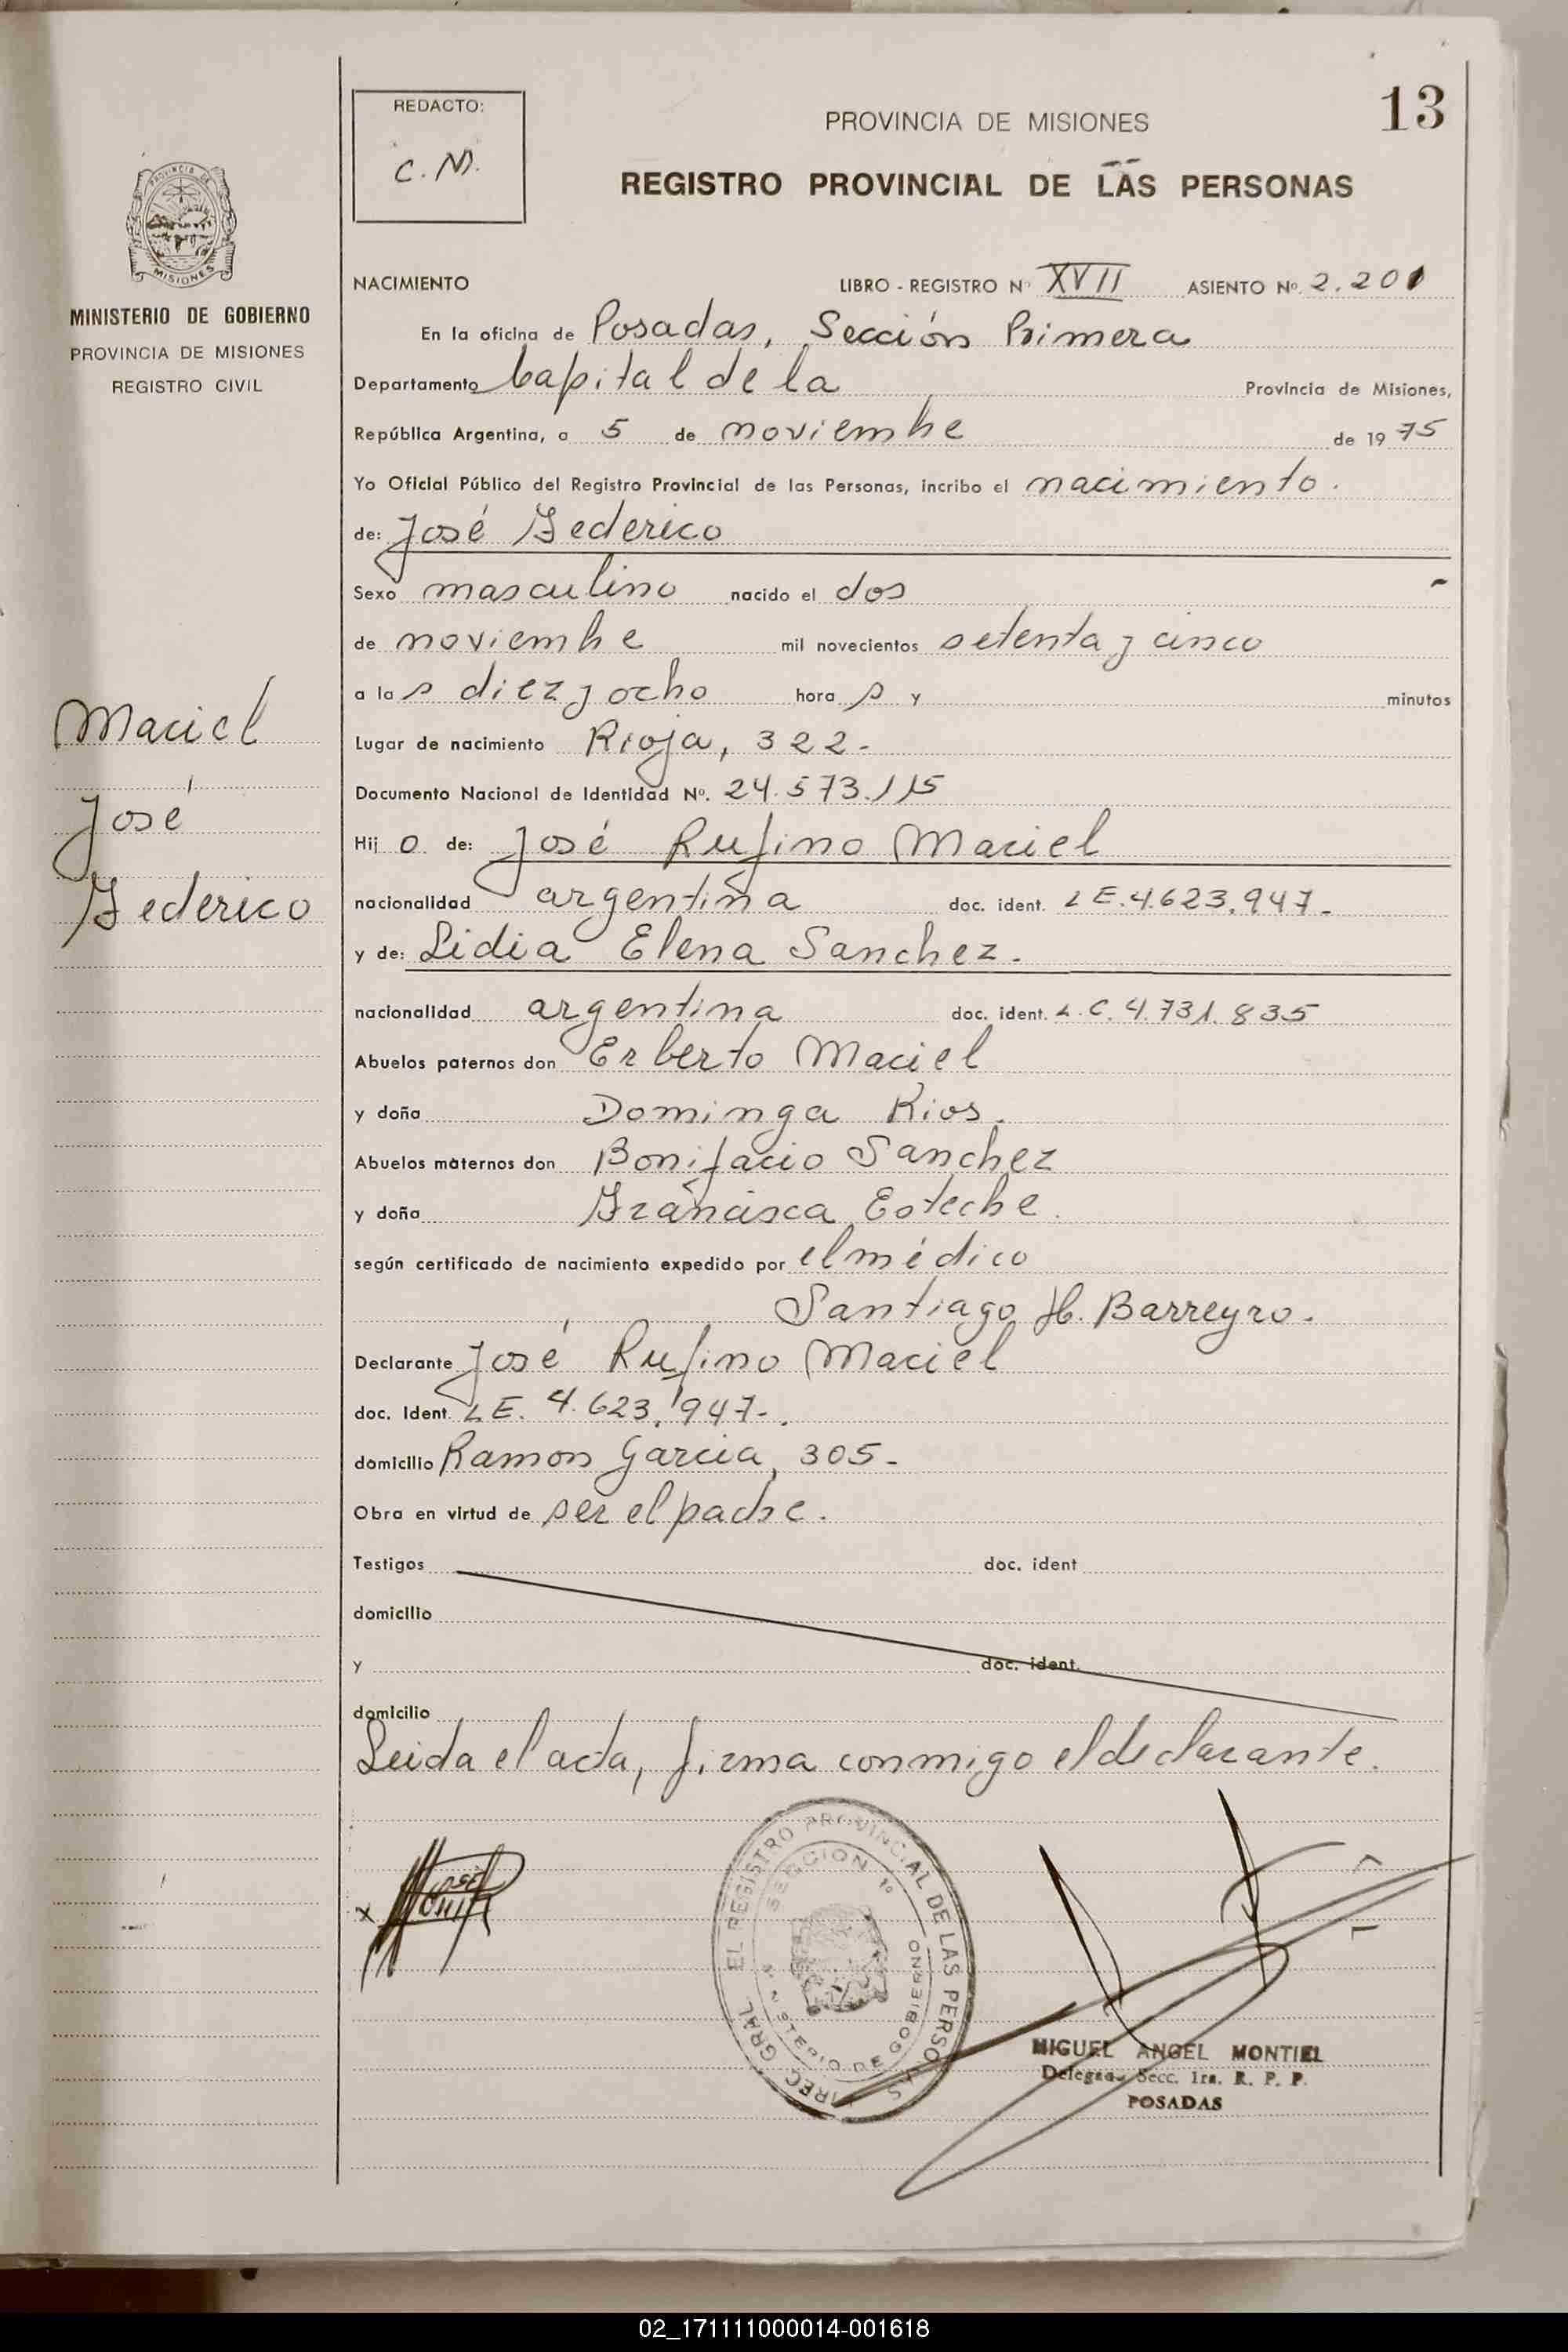 13
REDACTO:
C. M.
PROVINCIA DE MISIONES
REGISTRO PROVINCIAL DE LAS PERSONAS
PROVINCIA DE
MISIONES
MINISTERIO DE GOBIERNO
PROVINCIA DE MISIONES
REGISTRO CIVIL
NACIMIENTO LIBRO - REGISTRO Nº XVII ASIENTO Nº 2.201
En la oficina de Posadas, Sección Primera
Departamento Capital de la Provincia de Misiones,
República Argentina, a 5 de noviembre de 1975
Yo Oficial Público del Registro Provincial de las Personas, incribo el nacimiento.
de: José Federico
Sexo masculino nacido el dos -
de noviembre mil novecientos setenta y cinco
a las diez y ocho horas y minutos
Lugar de nacimiento Rioja, 322-
Documento Nacional de Identidad Nº. 24.573.115
Maciel
José
Federico
Hijo de: José Rufino Maciel
nacionalidad argentina doc. ident. LE.4.623.947-
y de: Lidia Elena Sanchez.
nacionalidad argentina doc. ident. L.C. 4.731.835
Abuelos paternos don Erberto Maciel
y doña Dominga Rios.
Abuelos maternos don Bonifacio Sanchez
y doña Francisca Esteche.
según certificado de nacimiento expedido por el médico
Santiago H. Barreyro.
Declarante José Rufino Maciel
doc. Ident. LE. 4.623.947-.
domicilio Ramon Garcia, 305-
Obra en virtud de ser el padre.
Testigos doc. ident
domicilio
y doc. ident.
domicilio
Leida el acta, firma conmigo el declarante.
x
DIREC GRAL EL REGISTRO PROVINCIAL DE LAS PERSONAS
SECCION 1º
MINISTERIO DE GOBIERNO
MIGUEL ANGEL MONTIEL
Delegado Secc. 1ra. R. P. P.
POSADAS
02_171111000014-001618